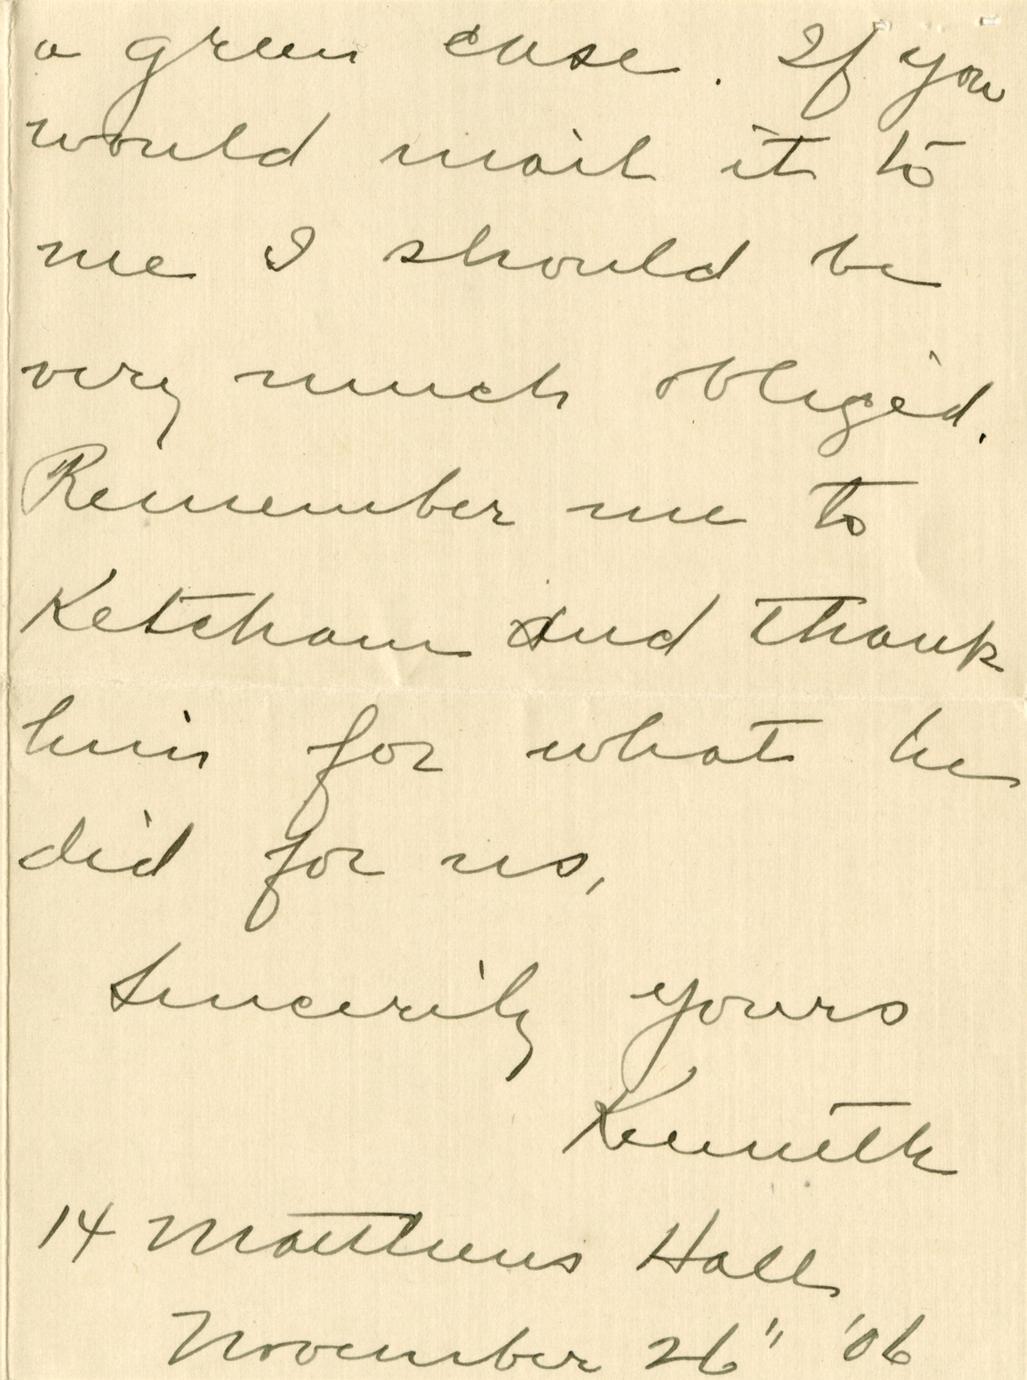 a green case. If you
would mail it to
me I should be
very much obliged.
Remember me to
Ketcham and thank
him for what he
did for us,
Sincerely yours
Kenneth
14 Matthews Hall
November 26" '06